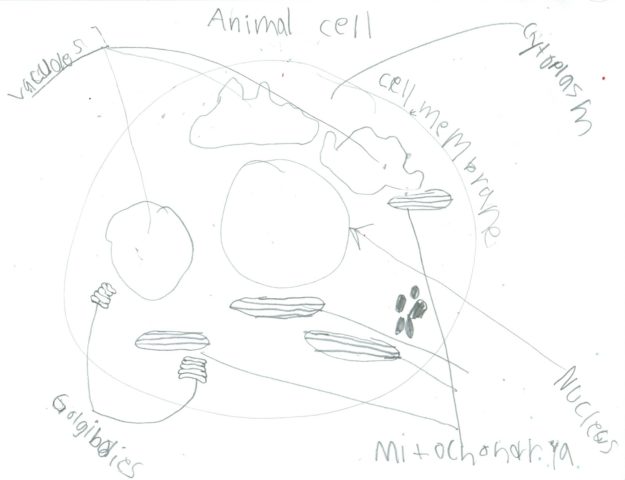 Animal cell
vacuoles
cytoplasm
cell membrane
Nucleus
Golgibodies
Mitochondriya